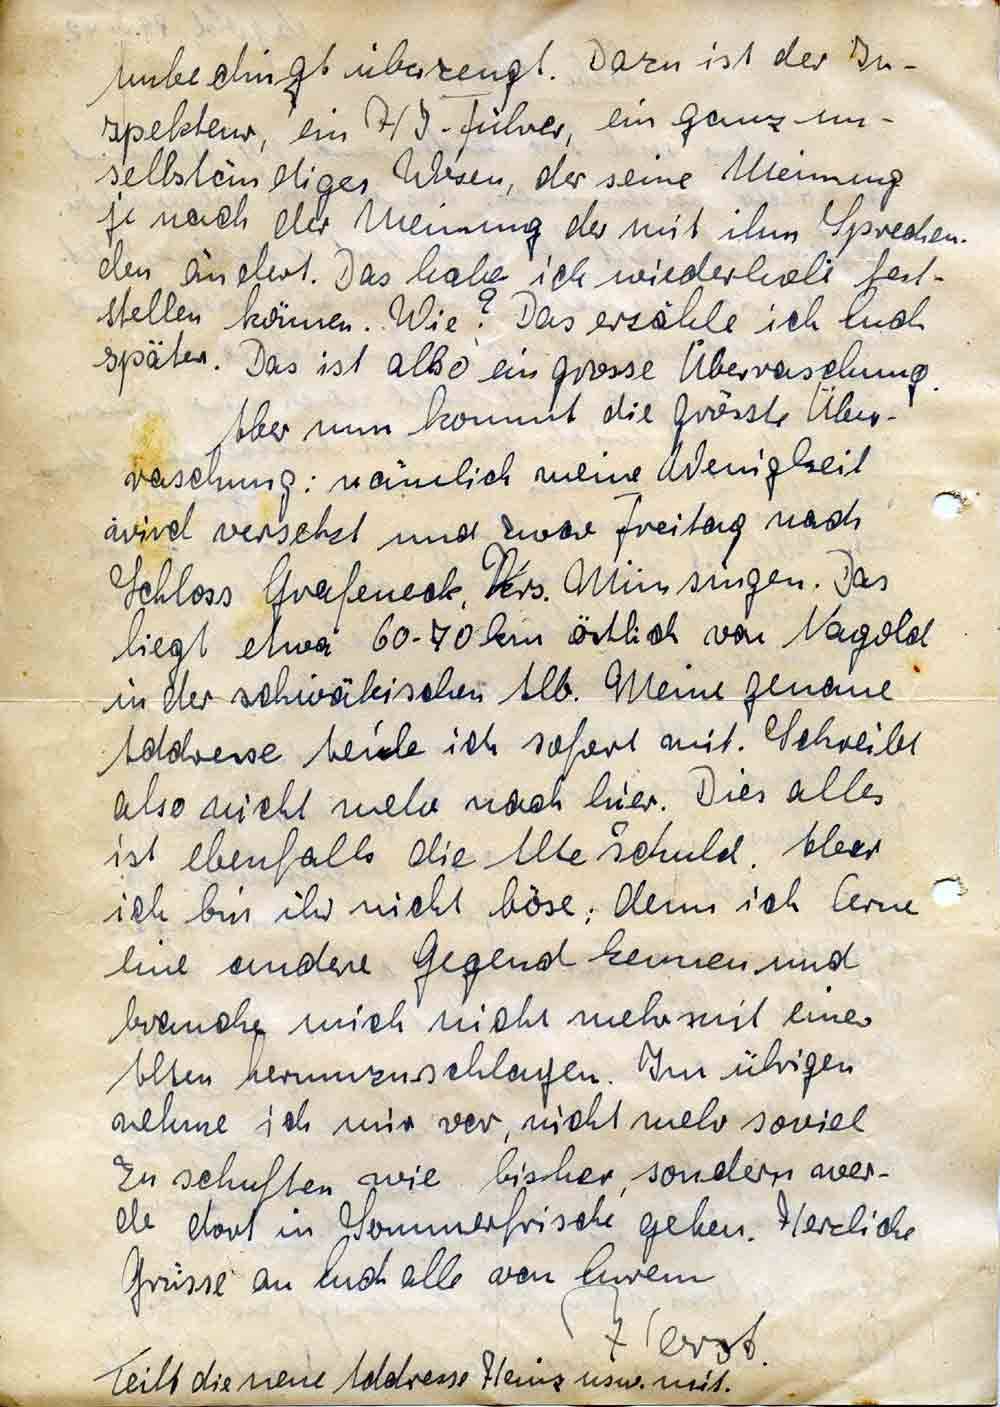 unbedingt überzeugt. Dazu ist der In-
spekteur, ein HJ-Führer, ein ganz un-
selbständiges Wesen, der seine Meinung
je nach der Meinung der mit ihm Sprechen-
den ändert. Das habe ich wiederholt fest-
stellen können. Wie? Das erzähle ich Euch
später. Das ist also ein grosse Überraschung.
Aber nun kommt die grösste Über-
raschung: nämlich meine Wenigkeit
wird versetzt und zwar Freitag nach
Schloss Grafeneck, Krs. Münsingen. Das
liegt etwa 60-70 km östlich von Nagold
in der schwäbischen Alb. Meine genaue
Addresse teile ich sofort mit. Schreibt
also nicht mehr nach hier. Dies alles
ist ebenfalls die Alte schuld. Aber
ich bin ihr nicht böse; denn ich lerne
eine andere Gegend kennen und
brauche mich nicht mehr mit einer
Alten herumzuschlagen. Im übrigen
nehme ich mir vor, nicht mehr soviel
zu schuften wie bisher, sondern wer-
de dort in Sommerfrische gehen. Herzliche
Grüsse an Euch alle von Eurem
Horst.
Teilt die neue Addresse Heinz usw. mit.